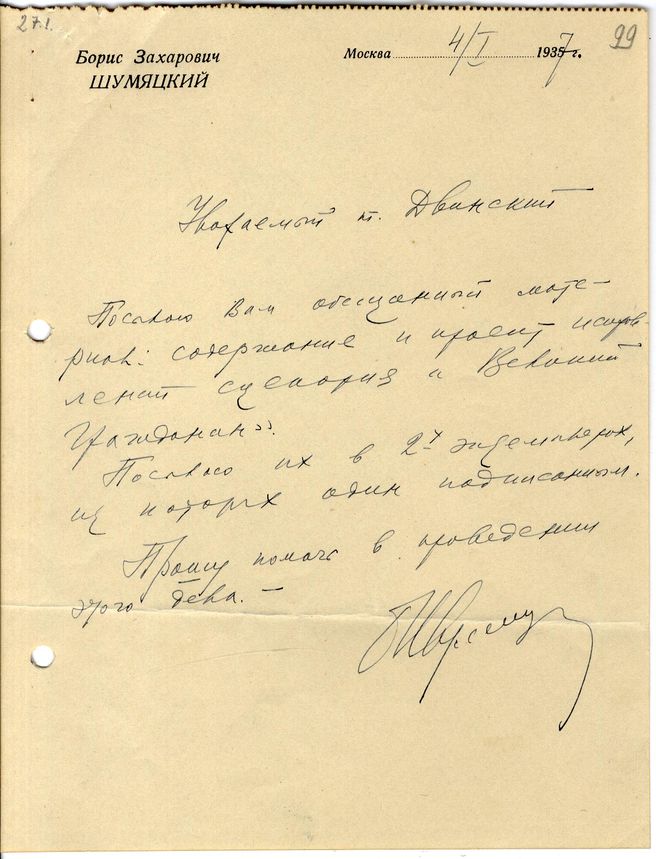 27.I.
99
Борис Захарович
ШУМЯЦКИЙ
Москва 4/I 1937 г.
Уважаемый т. Двинский
Посылаю Вам обещанный мате-
риал: содержание и проект исправ-
лений сценария «Великий
Гражданин».
Посылаю их в 2х экземплярах,
из которых один подписанным.
Прошу помочь в проведении
этого дела. —